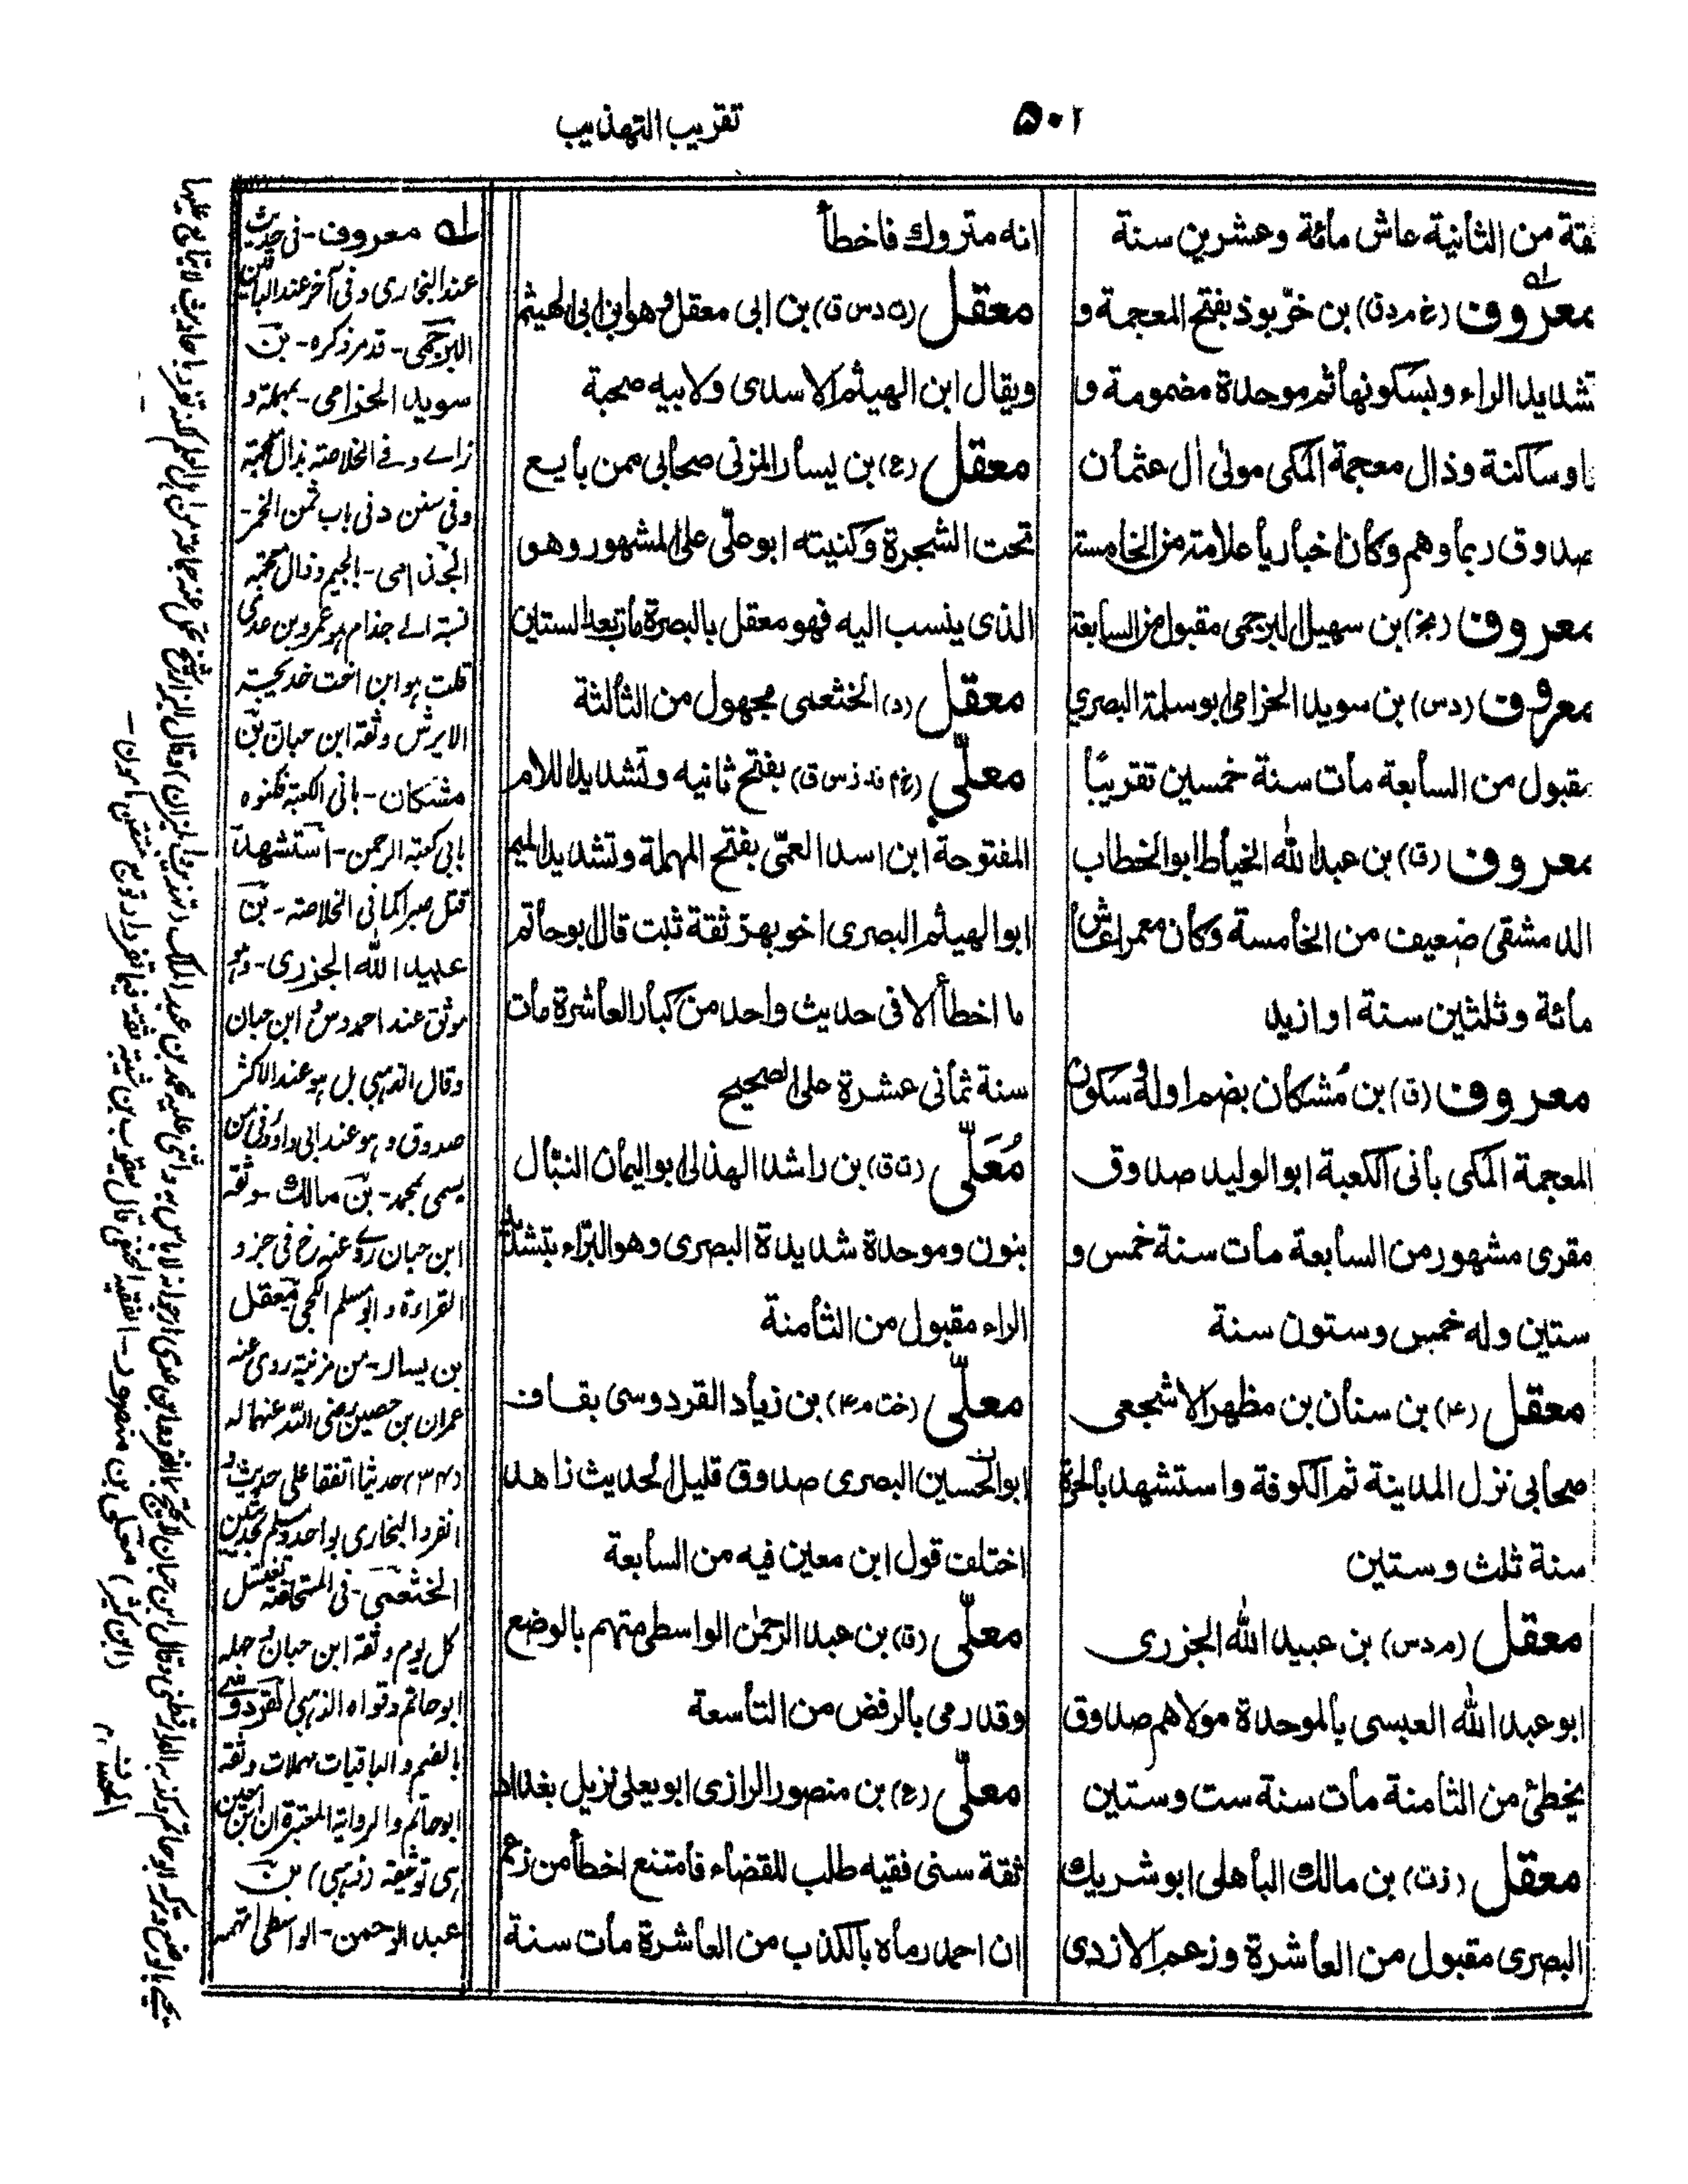 تقريب التهذيب
٥٠٢
ثقة من الثانية عاش مائة وعشرين سنة
معروف (خ م د ق) بن خرّبوذ بفتح المعجمة و
تشديد الراء وبسكونها ثم موحدة مضمومة و
واو ساكنة وذال معجمة المكى مولى ال عثمان
صدوق ربما وهم وكان اخباريا علامة من الخامسة
معروف (بخ) بن سهيل البرجمى مقبول من السابعة
معروف (د س) بن سويد الخزامى ابو سلمة البصري
مقبول من السابعة مات سنة خمسين تقريبًا
معروف (ق) بن عبد الله الخياط ابو الخطاب
الدمشقى ضعيف من الخامسة وكان معمرا عاش
مائة وثلثين سنة او ازيد
معروف (ق) بن مُشكان بضم اوله وسكون
المعجمة المكى بانى الكعبة ابو الوليد صدوق
مقرى مشهور من السابعة مات سنة خمس و
ستين وله خمس وستون سنة
معقل (٤) بن سنان بن مظهر الاشجعى
صحابى نزل المدينة ثم الكوفة واستشهد بالحرة
سنة ثلث وستين
معقل (م د س) بن عبيد الله الجزرى
ابو عبد الله العبسى بالموحدة مولاهم صدوق
يخطئ من الثامنة مات سنة ست وستين
معقل (ز ت) بن مالك الباهلى ابو شريك
البصرى مقبول من العاشرة وزعم الازدى
انه متروك فاخطأ
معقل (د س ق) بن ابى معقل وهو ابن ابى الهيثم
ويقال ابن الهيثم الاسدى ولابيه صحبة
معقل (ع) بن يسار المزنى صحابى ممن بايع
تحت الشجرة وكنيته ابو علّى على المشهور وهو
الذى ينسب اليه نهر معقل بالبصرة مات بعد الستين
معقل (د) الخثعمى مجهول من الثالثة
معلّى (خ م قد ت س ق) بفتح ثانيه وتشديد اللام
المفتوحة ابن اسد العمّى بفتح المهملة وتشديد الميم
ابو الهيثم البصرى اخو بهز ثقة ثبت قال ابو حاتم
ما اخطأ الا فى حديث واحد من كبار العاشرة مات
سنة ثمانى عشرة على الصحيح
مُعَلّى (ت ق) بن راشد الهذلى ابو اليمان النبّال
بنون وموحدة شديدة البصرى وهو البرّاء بتشديد
الراء مقبول من الثامنة
معلّى (خت م ٤) بن زياد القردوسى بقاف
ابو الحسن البصرى صدوق قليل الحديث زاهد
اختلف قول ابن معين فيه من السابعة
معلّى (ق) بن عبد الرحمٰن الواسطى متهم بالوضع
وقد رمى بالرفض من التاسعة
معلّى (ع) بن منصور الرازى ابو يعلى نزيل بغداد
ثقة سنى فقيه طلب للقضاء فامتنع اخطأ من زعم
ان احمد رماه بالكذب من العاشرة مات سنة
له معروف - فى حديث
عند البخارى وفى آخر عند
البرجمى - قد مر ذكره - بن
سويد الخزامى - بمهملة و
زاے وفے الخلاصة بذال معجمة
وفى سنن د فى باب ثمن الخمر -
الجذامى - بالجيم وذال معجمة
نسبة الے جذام ہو عمرو بن عدى
قلت ہو ابن اخت خديجة
الابرش وثقه ابن حبان بن
مشكان - بانى الكعبة فكنوه
بابى كعبة الرحمن - استشهد
قتل صبرا كما فى الخلاصة - بن
عبيد الله الجزرى - وہو
موثق عند احمد وس ابن حبان
وقال الذہبى بل ہو عند الاكثر
صدوق وہو عند ابى داود فى من
يسمى بمحمد - بن مالك - وثقه
ابن حبان روے عنه خ فى جزء
القراءة وابو مسلم الكجى معقل
بن يسار - من مزينة روى عنه
عمران بن حصين رضى الله عنهما له
(٣٤) حديثا اتفقا على حديث و
انفرد البخارى بواحد ومسلم بحديثين
الخثعمى - فى المستحاضة تغتسل
كل يوم وثقه ابن حبان جهله
ابو حاتم وقواه الذہبى القردوسے
بالضم والباقيات مهملات وثقه
ابو حاتم والرواية المعتبرة ان ابن معين
ہى توثيقه (ذہبى) بن
عبد الرحمن - الواسطى اتهمه